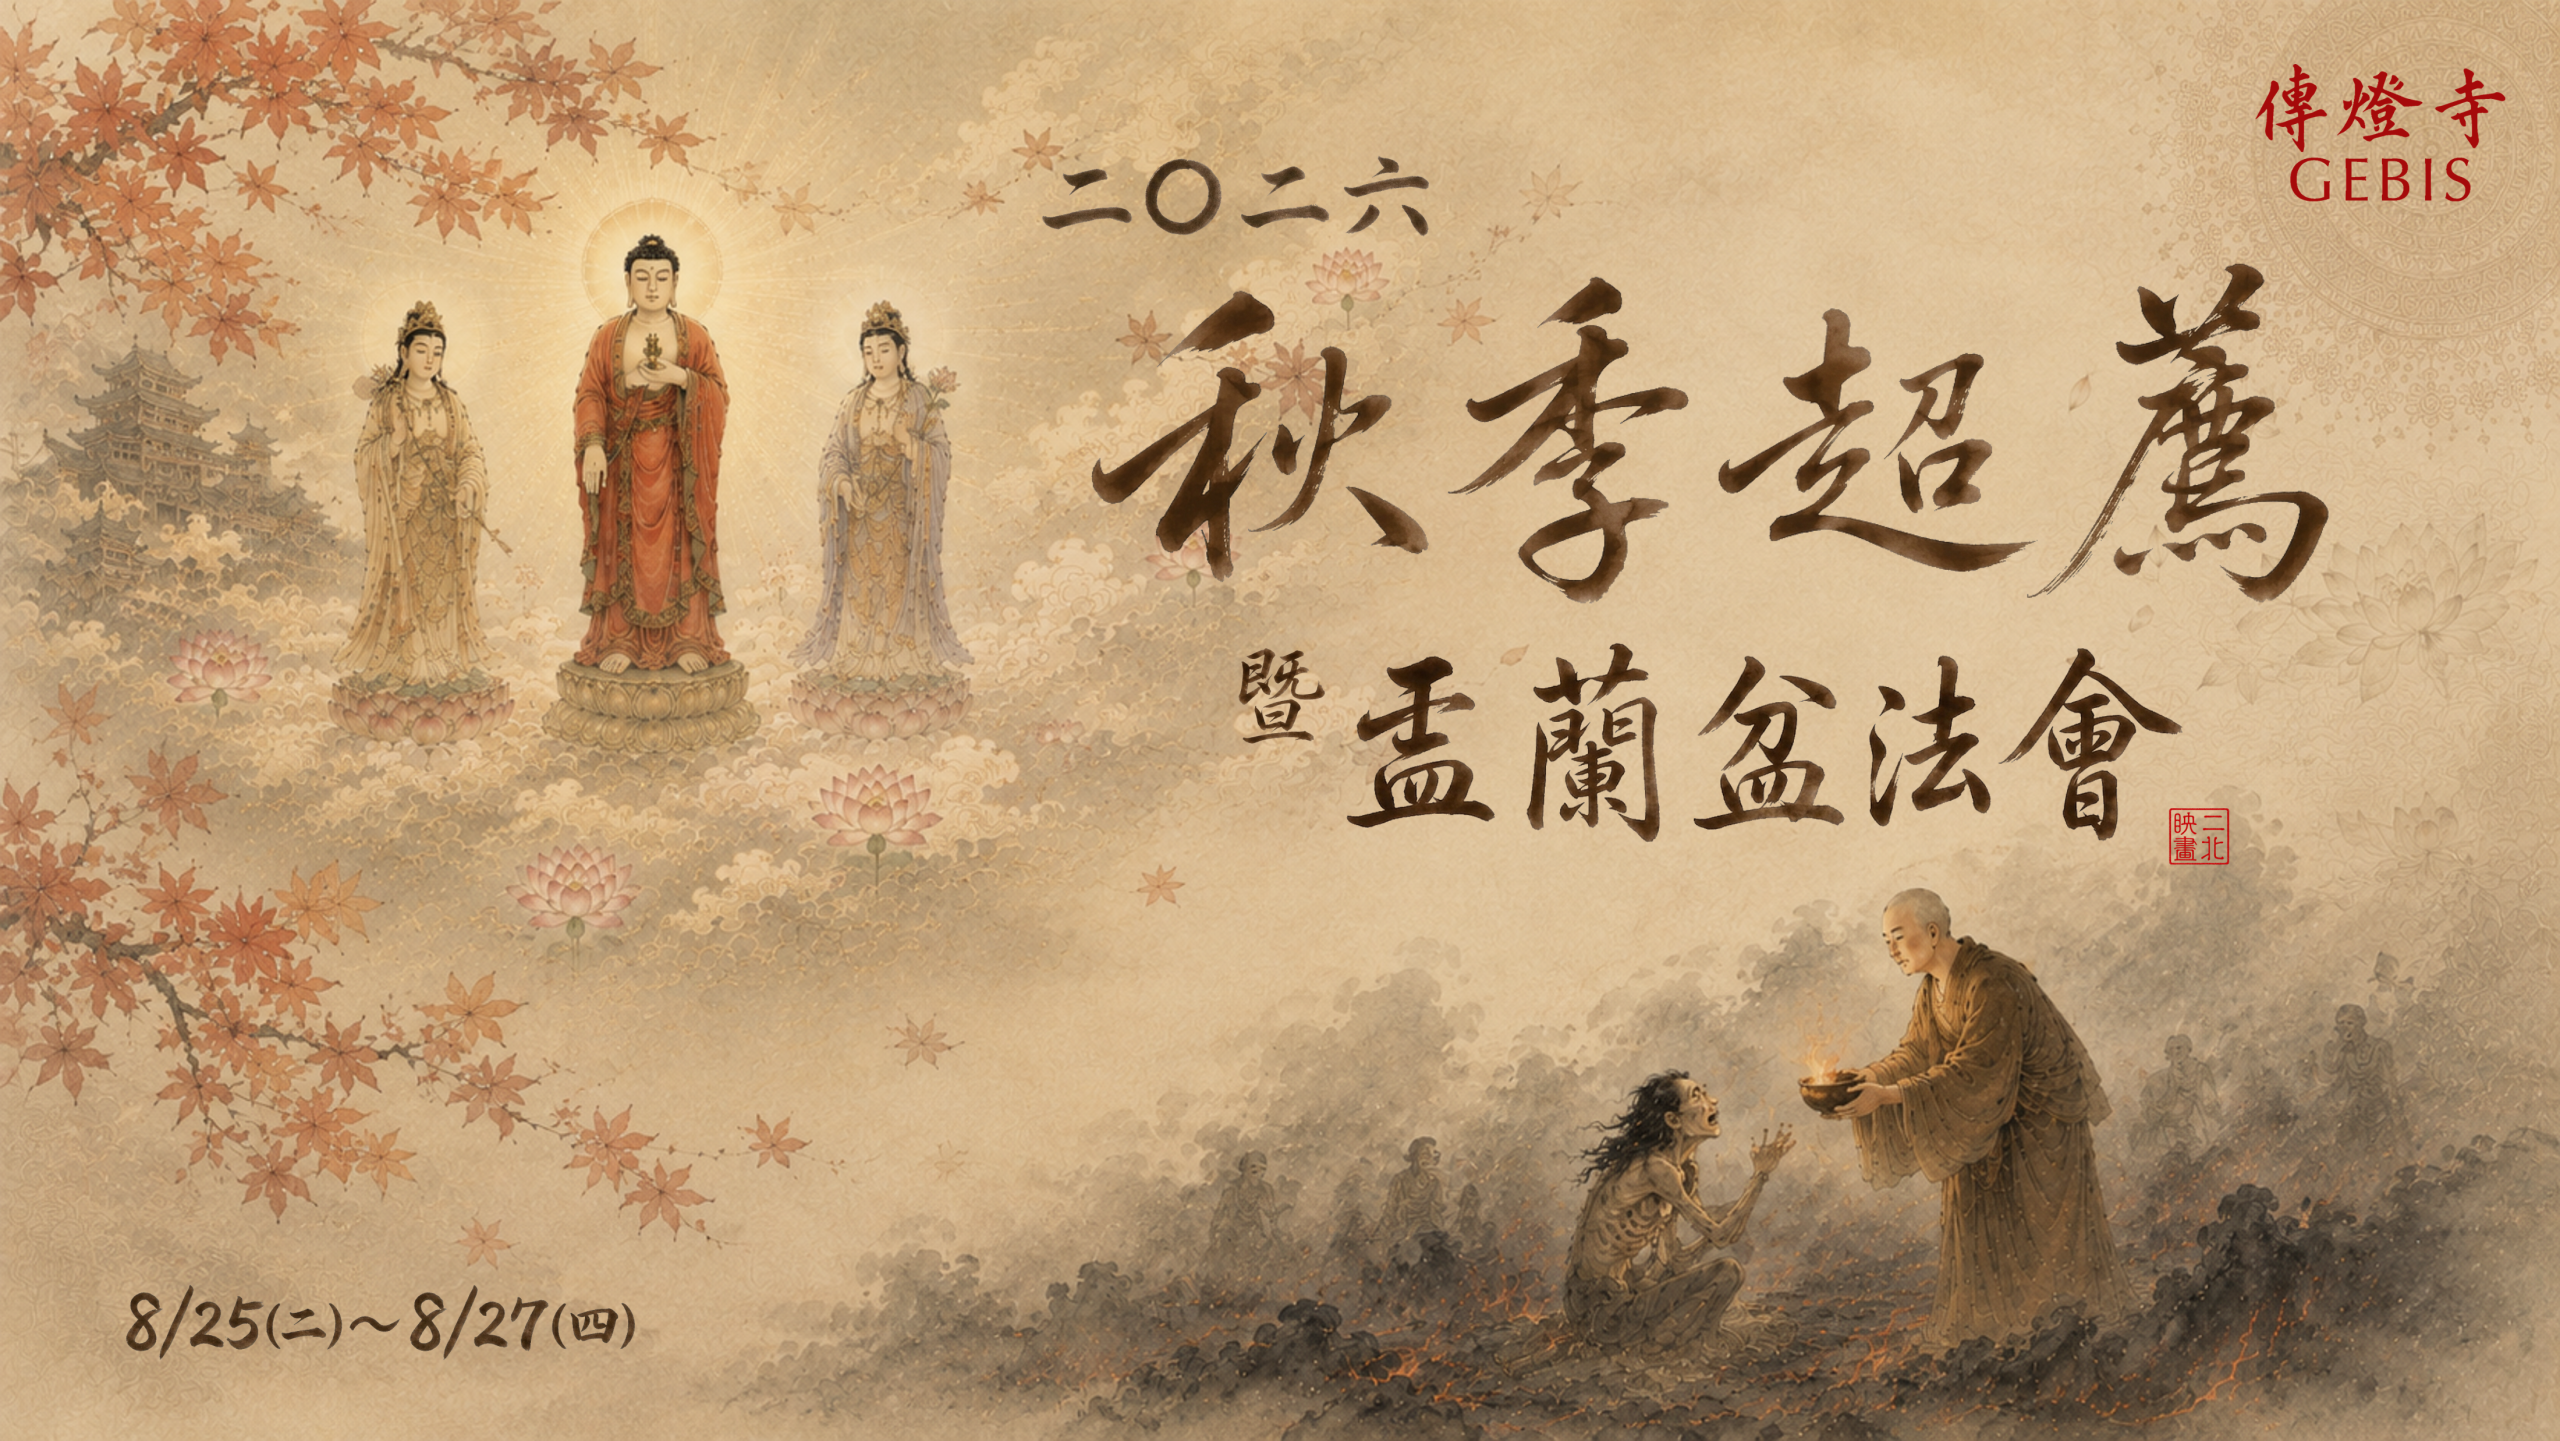 傳燈寺
GEBIS
二〇二六
秋季超薦
暨盂蘭盆法會
二北
映畫
8/25(二)～8/27(四)